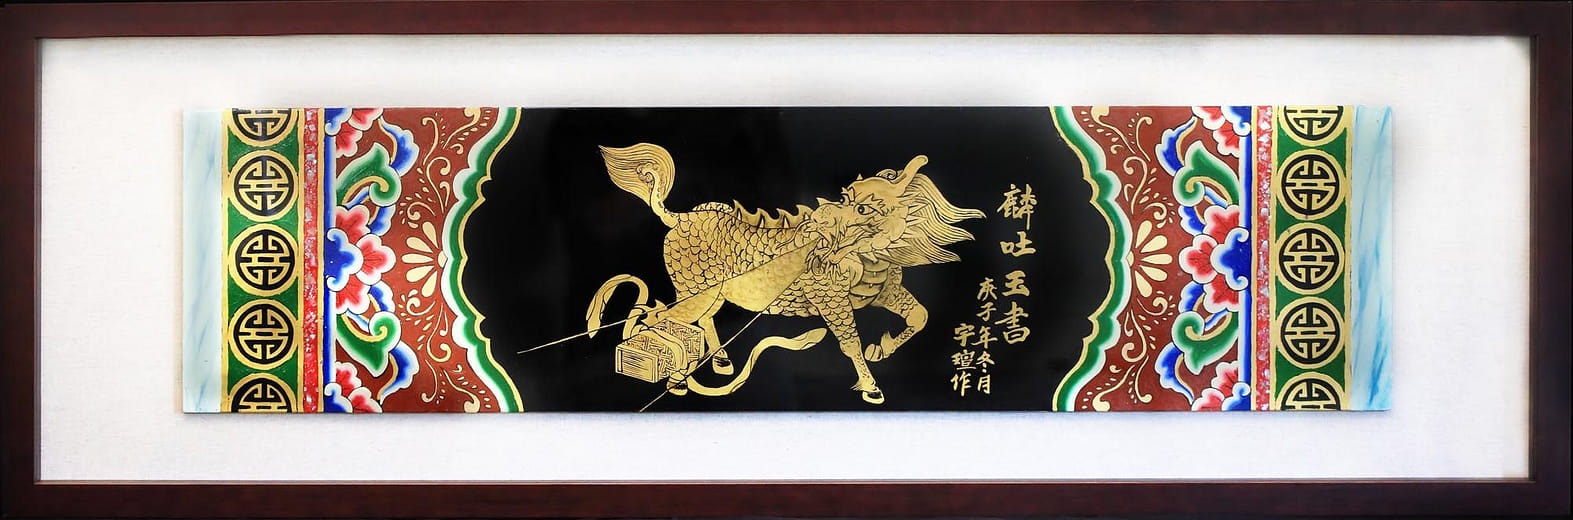 麟吐玉書
庚子年冬月
宇瑄作